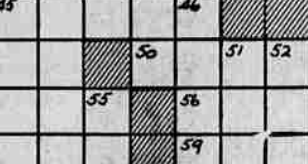 46
50 51 52
55 56
59